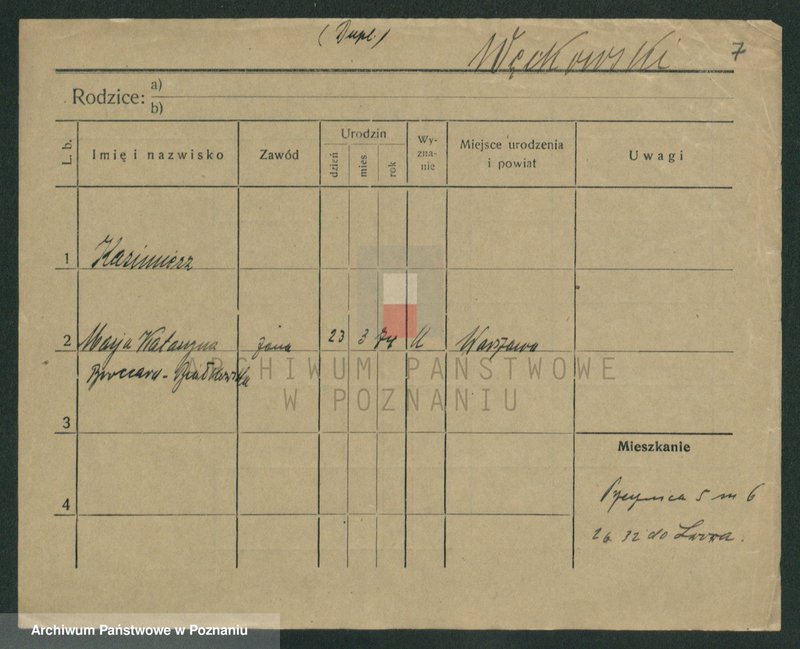 (Dupl.)
Węckowski 7
Rodzice: a)
b)
L. b.
Imię i nazwisko
Zawód
Urodzin
dzień
mies
rok
Wy-
zna-
nie
Miejsce urodzenia
i powiat
Uwagi
1 Kazimierz
2 Marja Katarzyna żona 23 3 74 K Warszawa
3
Mieszkanie
5 m 6
4
26. 32 do Lwowa.
ARCHIWUM PAŃSTWOWE
W POZNANIU
Archiwum Państwowe w Poznaniu